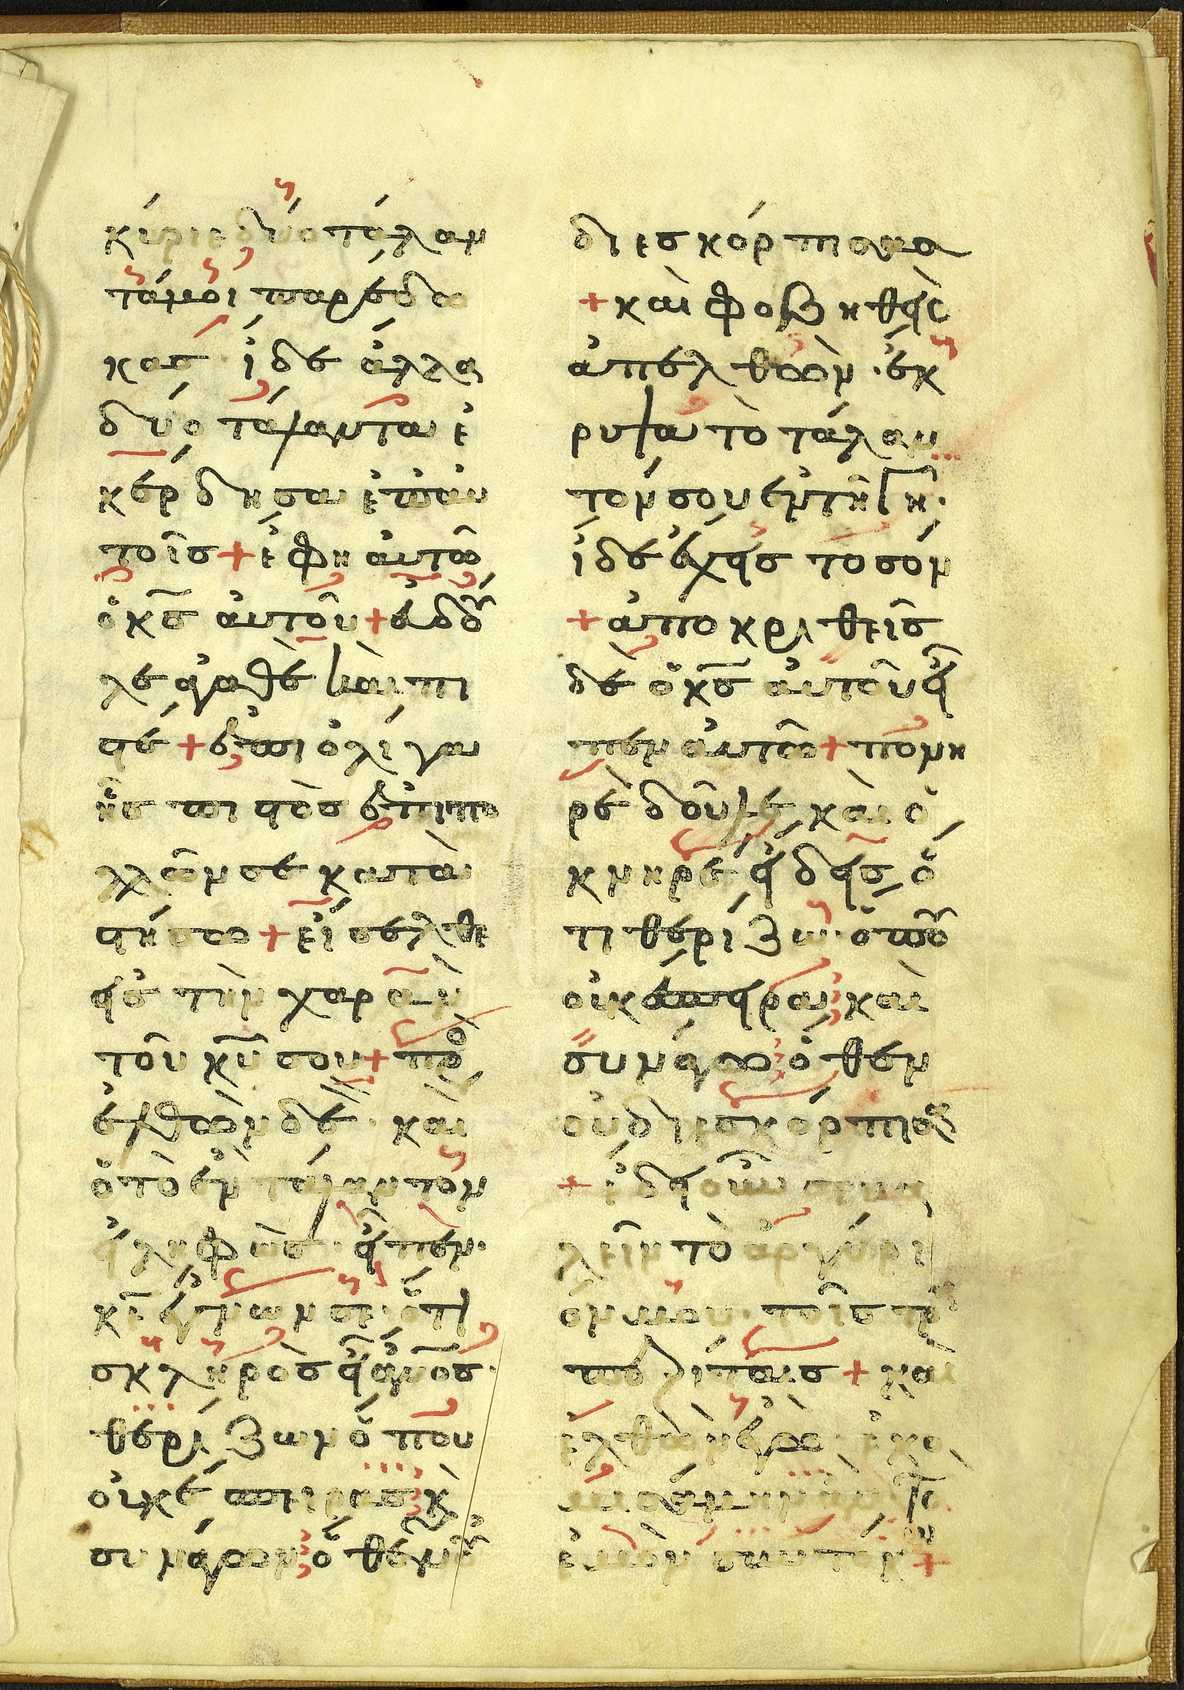 κύριε δύο τάλαν
τά μοι παρέδω
κας ἴδε ἄλλα
δύο τάλαντα ἐ
κέρδησα ἐπ' αὐ
τοῖς + ἔφη αὐτῶ
ὁ κς αὐτοῦ + εὖ δοῦ
λε ἀγαθὲ καὶ πι
στέ + ἐπὶ ὀλίγα
ἦς πιστὸς ἐπὶ πο
λλῶν σε κατα
στήσω + εἴσελθε
εἰς τὴν χαρὰν
τοῦ κυ σου + προ
ελθὼν δὲ καὶ
ὁ τὸ ἓν τάλαντον
εἰληφὼς εἶπεν·
κε ἔγνων σε· ὅτι
σκληρὸς εἶ ανος·
θερίζων ὅπου
οὐκ ἔσπειρας κ
συνάγων ὅθεν οὐ
διεσκόρπισας
+ καὶ φοβηθεὶς
ἀπελθὼν· ἔκ
ρυψα τὸ τάλαν
τόν σου ἐν τῆ γῆ·
ἴδε ἔχεις τὸ σόν
+ ἀποκριθεὶς
δὲ ὁ κς αὐτοῦ εἶ
πεν αὐτῶ + πονη
ρὲ δοῦλε καὶ ὀ
κνηρὲ ἤδεις ὅ
τι θερίζω ὅπου
οὐκ ἔσπειρα καὶ
συνάγω ὅθεν
οὐ διεσκόρπισα
+ ἔδει οὖν σε βα
λεῖν τὸ ἀργύρι
όν μου· τοῖς τρα
πεζίταις + καὶ
ἐλθὼν ἐγὼ ἐκο
μισάμην ἂν τὸ
ἐμὸν σὺν τόκω +